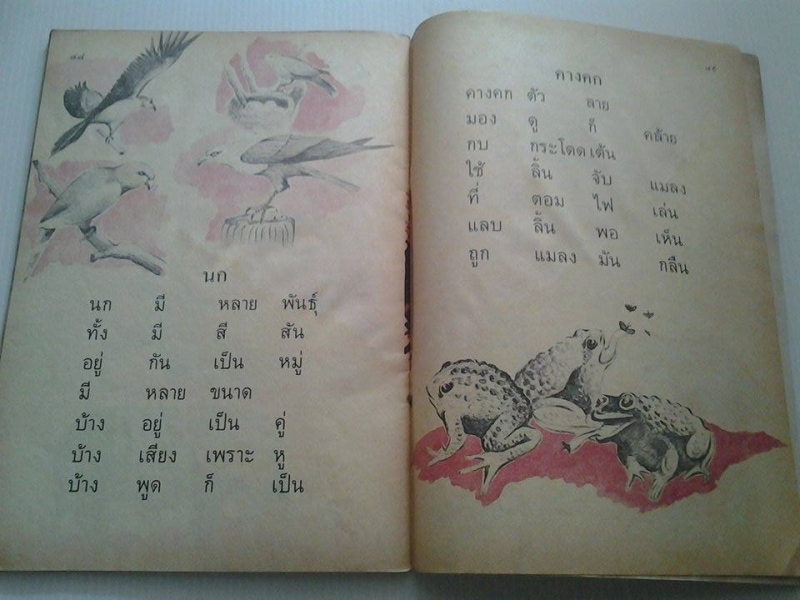 ๔๘
นก
นก มี หลาย พันธุ์
ทั้ง มี สี สัน
อยู่ กัน เป็น หมู่
มี หลาย ขนาด
บ้าง อยู่ เป็น คู่
บ้าง เสียง เพราะ หู
บ้าง พูด ก็ เป็น
๔๙
คางคก
คางคก ตัว ลาย
มอง ดู ก็ คล้าย
กบ กระโดด เต้น
ใช้ ลิ้น จับ แมลง
ที่ ตอม ไฟ เล่น
แลบ ลิ้น พอ เห็น
ถูก แมลง มัน กลืน